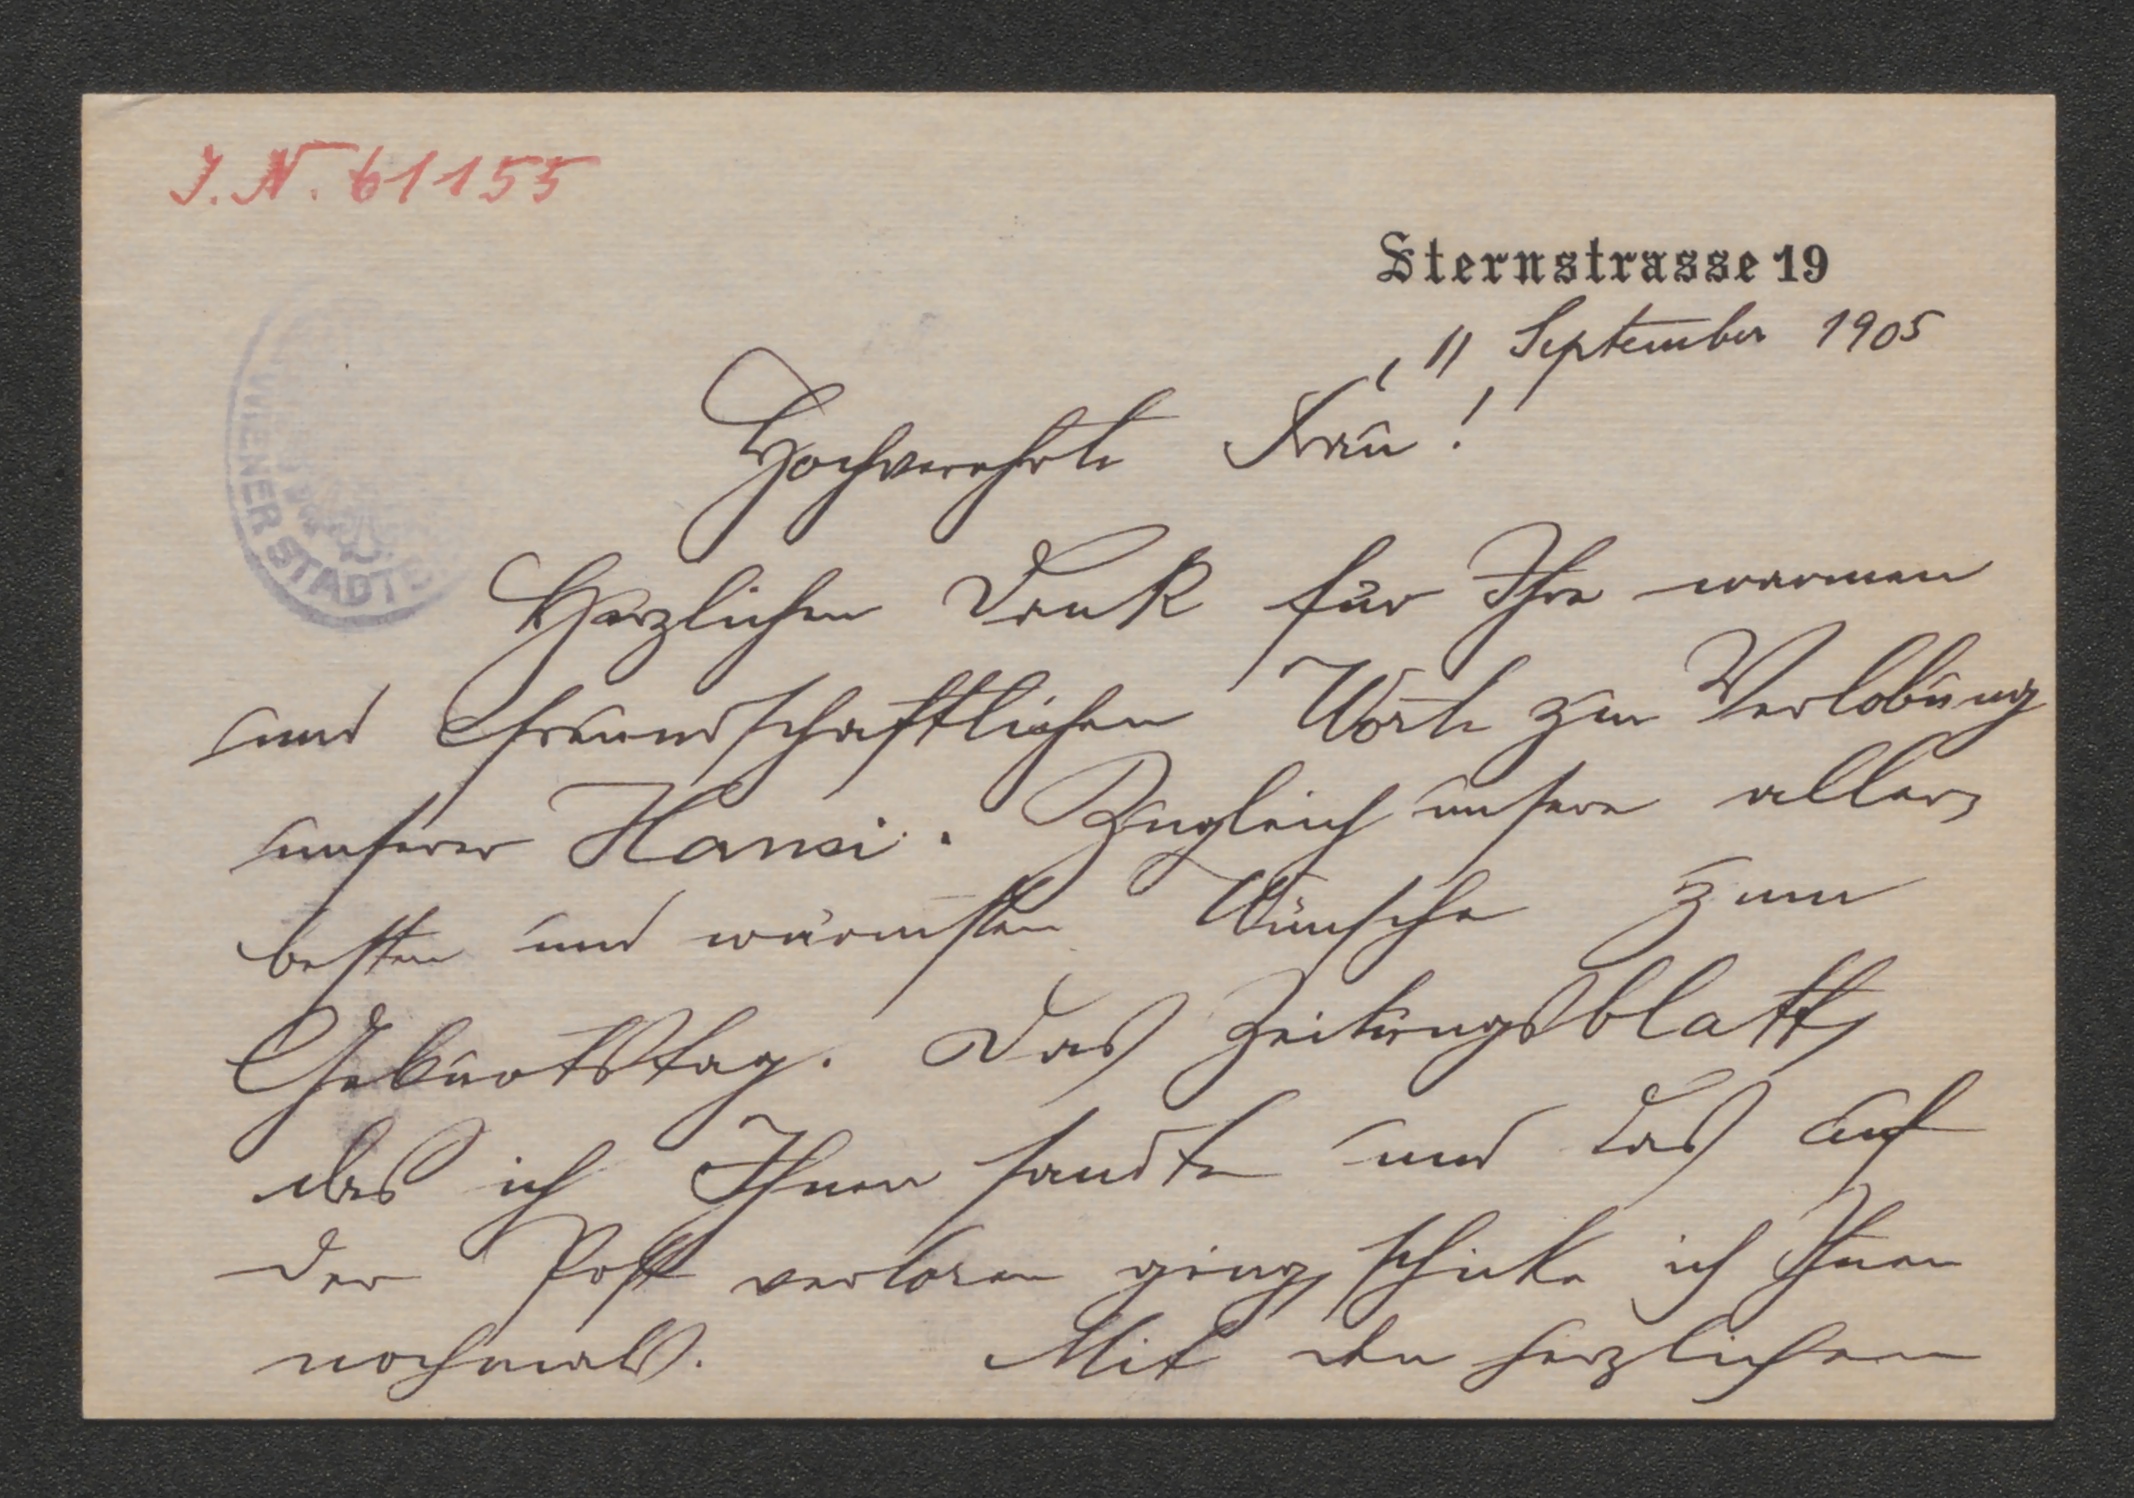 J. N. 61155
Sternstrasse 19
11 September 1905
Hochverehrte Frau!
Herzlichen Dank für Ihre warmen
und freundschaftlichen Worte zur Verlobung
unserer Hansi. Zugleich unsere aller-
besten und wärmsten Wünsche zum
Geburtstag. Das Zeitungsblatt,
das ich Ihnen sandte und das auf
der Post verloren ging, schicke ich Ihnen
nochmals. Mit den herzlichen
WIENER STADT